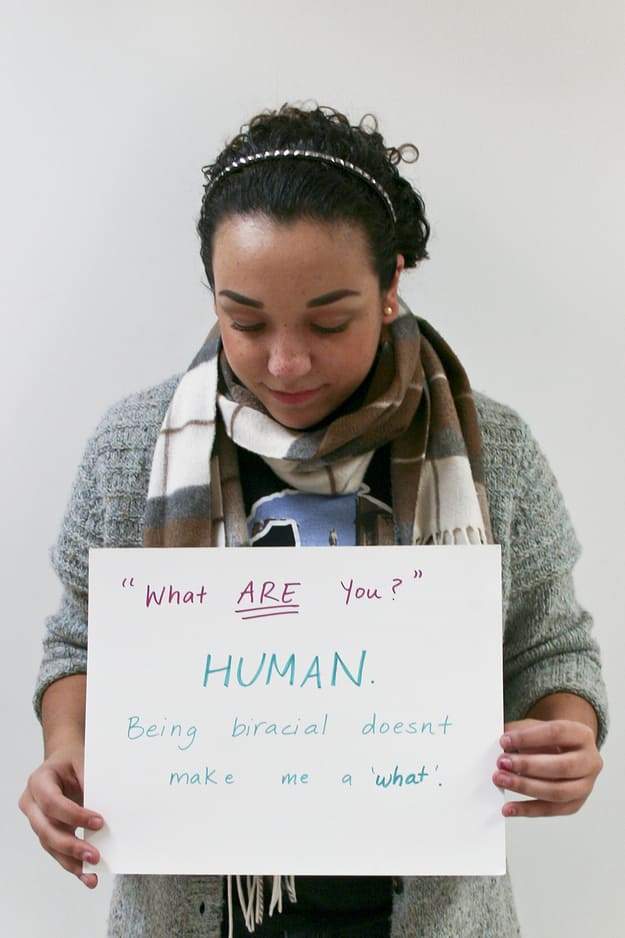 "What ARE You?"
HUMAN.
Being biracial doesnt
make me a 'what'.